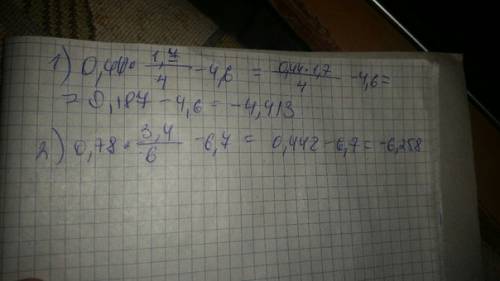 1) 0,44 · 1,7/4 - 4,6 = 0,44·1,7/4 - 4,6 =
= 0,187 - 4,6 = -4,413
2) 0,78 · 3,4/6 - 6,7 = 0,442 - 6,7 = -6,258